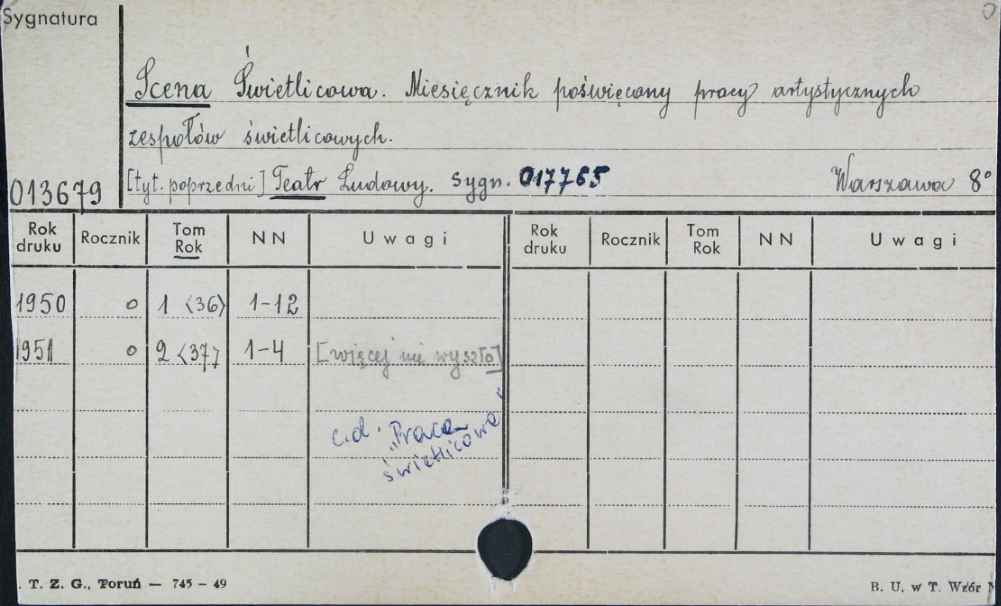 Sygnatura
Scena Świetlicowa. Miesięcznik poświęcony pracy artystycznych
zespołów świetlicowych.
013679 [tyt. poprzedni] Teatr Ludowy. Sygn. 017765 Warszawa 8°
Rok druku Rocznik Tom Rok NN Uwagi Rok druku Rocznik Tom Rok NN Uwagi
1950 o 1 <36> 1-12
1951 o 2 <37> 1-4 [więcej nie wyszło]
c.d. "Praca
świetlicowa"
. T. Z. G., Toruń — 745 – 49 B. U. w T. Wzór